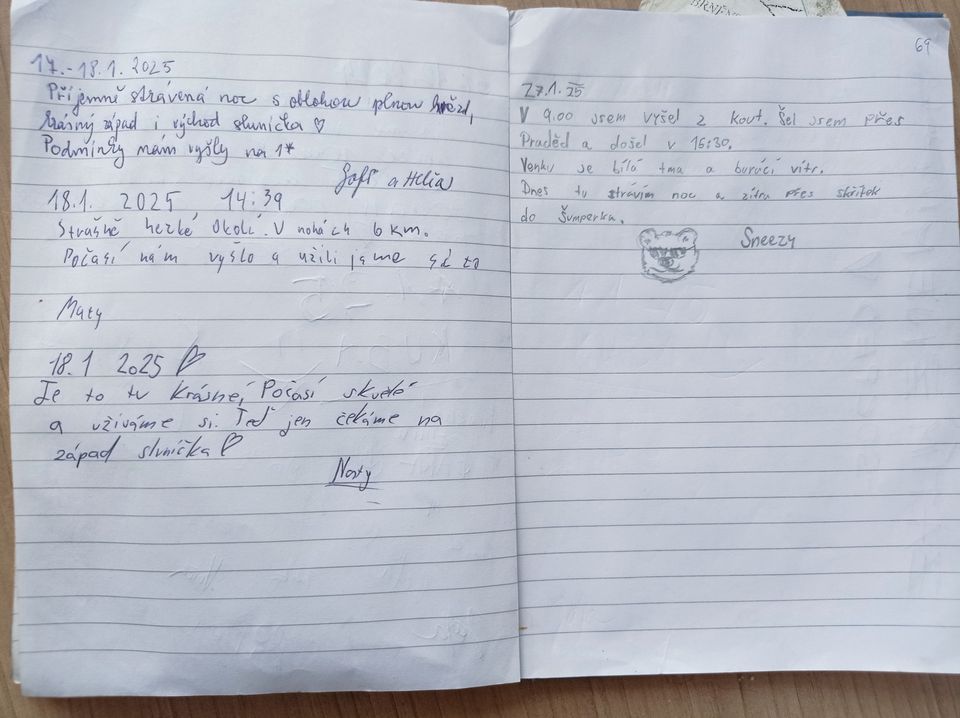 17.-18.1. 2025
Příjemně strávená noc s oblohou plnou hvězd,
krásný západ i východ sluníčka ♡
Podmínky nám vyšly na 1*
Sofi a Helia
18.1. 2025 14:39
Strašně hezké okolí. V nohách 6 km.
Počasí nám vyšlo a užili jsme si to
Maty
18.1 2025 ♡
Je to tu krásné, Počasí skvělé
a užíváme si. Teď jen čekáme na
západ sluníčka ♡
Naty
69
27.1. 25
V 9.00 jsem vyšel z Kout. Šel jsem přes
Praděd a došel v 16:30.
Venku se bílá tma a burácí vítr.
Dnes tu strávím noc a zítra přes skřítek
do Šumperka.
Sneezy